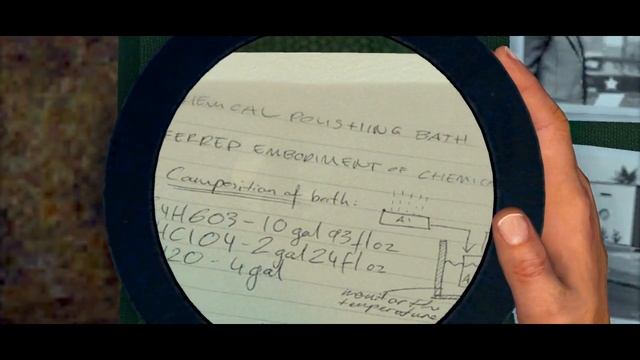 HEMICAL POLISHING BATH
FERRED EMBODIMENT of CHEMIC
Composition of bath:
4H6O3 - 10 gal 93 fl oz
HClO4 - 2 gal 24 fl oz
H2O - 4 gal
Al
A
monitor the
temperature